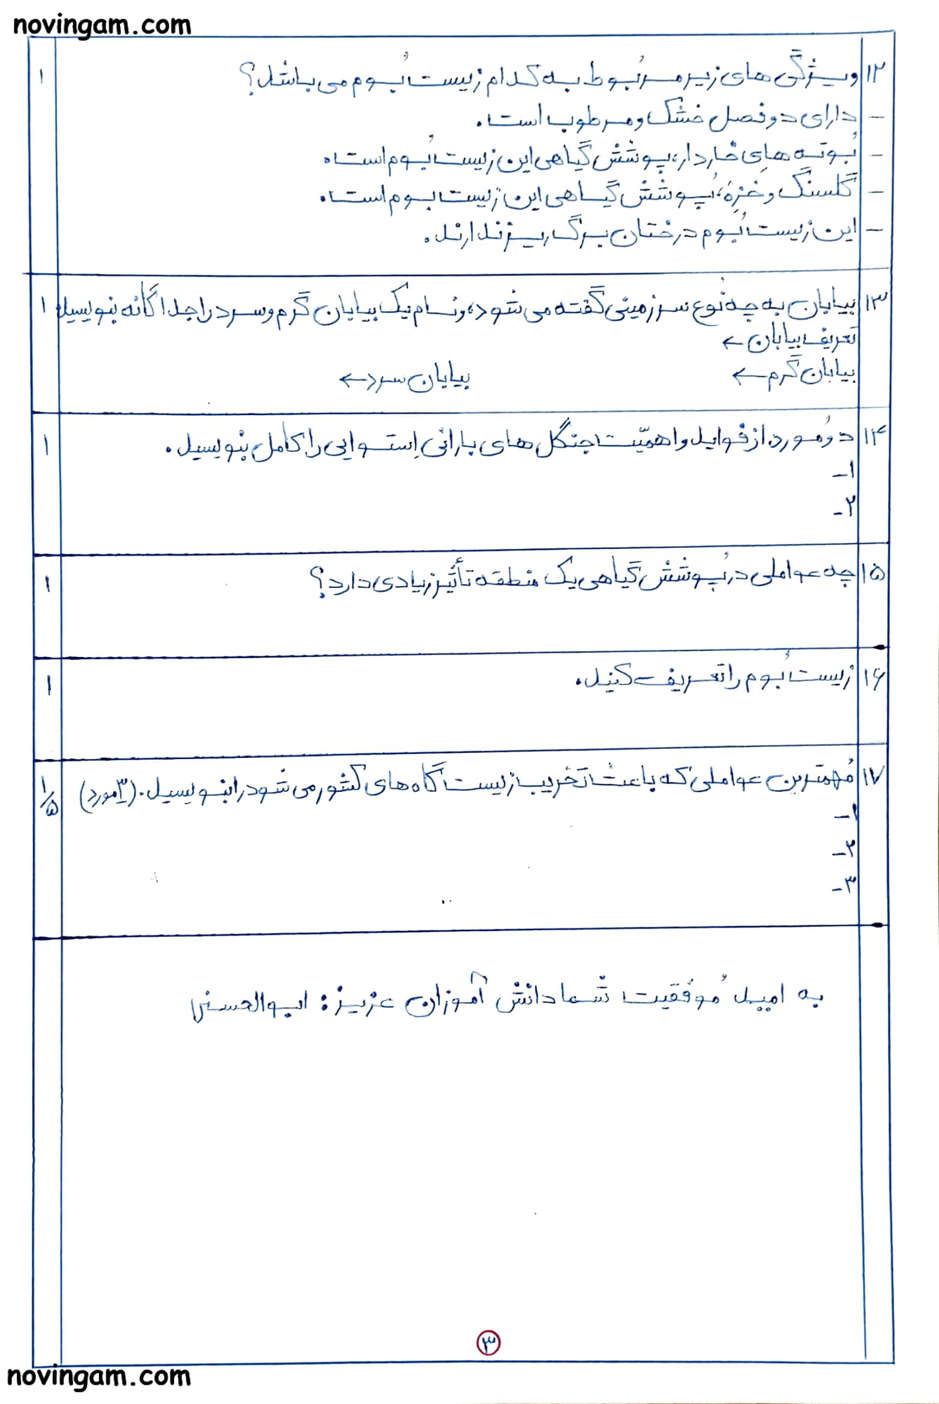 novingam.com
۱۲ ویژگی های زیر مربُوط به کدام زیست بُوم می باشد؟ ۱
- دارای دو فصل خشک و مرطوب است.
- بُوته های خاردار، پوشش گیاهی این زیست بُوم است.
- گلسنگ و خزه، پُوشش گیاهی این زیست بوم است.
- این زیست بُوم درختان برگ ریز ندارند.
۱۳ بیابان به چه نوع سرزمینی گفته می شود، و نام یک بیابان گرم و سرد را جداگانه بنویسید ۱
تعریف بیابان ←
بیابان گرم ← بیابان سرد ←
۱۴ دو مُورد از فواید و اهمیّت جنگل های بارانی اِستوایی را کامل بنویسید. ۱
۱-
۲-
۱۵ چه عواملی در پُوشش گیاهی یک منطقه تأثیر زیادی دارد؟ ۱
۱۶ زیست بُوم را تعریف کنید. ۱
۱۷ مُهمترین عواملی که باعث تخریب زیست گاه های کشور می شود را بنویسید. (۳ مورد) ۱/۵
۱-
۲-
۳-
به امید مُوفقیت شما دانش آموزان عزیز: ابوالحسنی
۳
novingam.com